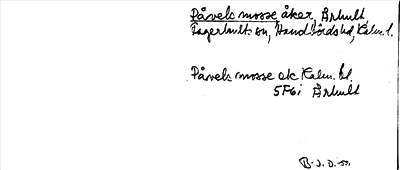 Påvels mosse, åker, Århult,
Fagerhults sn, Handbörds hd, Kalm. l.
Påvels mosse ek Kalm. bl.
5F6i Århult